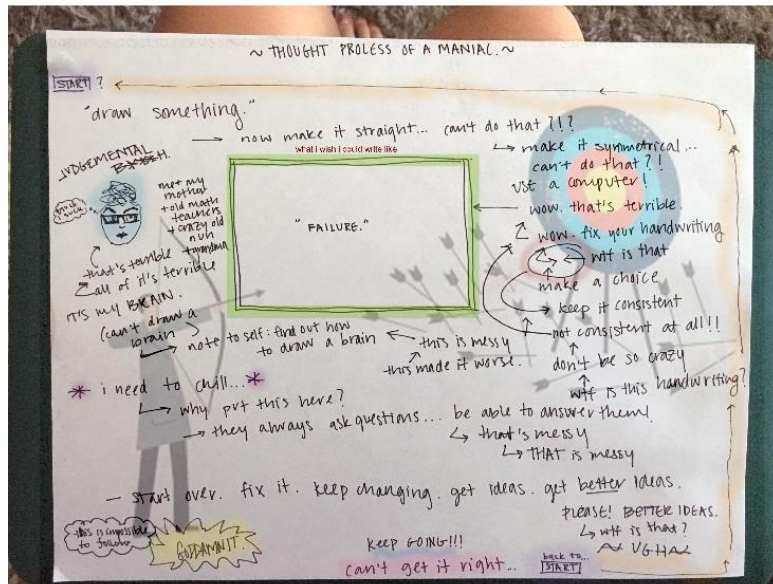 ~ THOUGHT PROCESS OF A MANIAC. ~
START?
"draw something."
→ now make it straight... can't do that?!?
what i wish i could write like
↳ make it symmetrical...
can't do that?!
USE a computer!
← wow. that's terrible.
wow. fix your handwriting
← wtf is that
make a choice
keep it consistent
not consistent at all!!
don't be so crazy
wtf is this handwriting?
"FAILURE."
JUDGEMENTAL
me + my
mother
+ old math
teachers
+ crazy old
nun
+ grandma
that's terrible
all of it's terrible
IT'S MY BRAIN.
(can't draw a
brain)
note to self: find out how
to draw a brain
this is messy
this made it worse.
* i need to chill... *
↳ why put this here?
→ they always ask questions... be able to answer them!
↳ that's messy
↳ THAT is messy
- start over. fix it. keep changing. get ideas. get better ideas.
PLEASE! BETTER IDEAS.
↳ wtf is that?
UGH
this is impossible
to follow
GODDAMNIT.
KEEP GOING!!!
can't get it right...
back to...
START